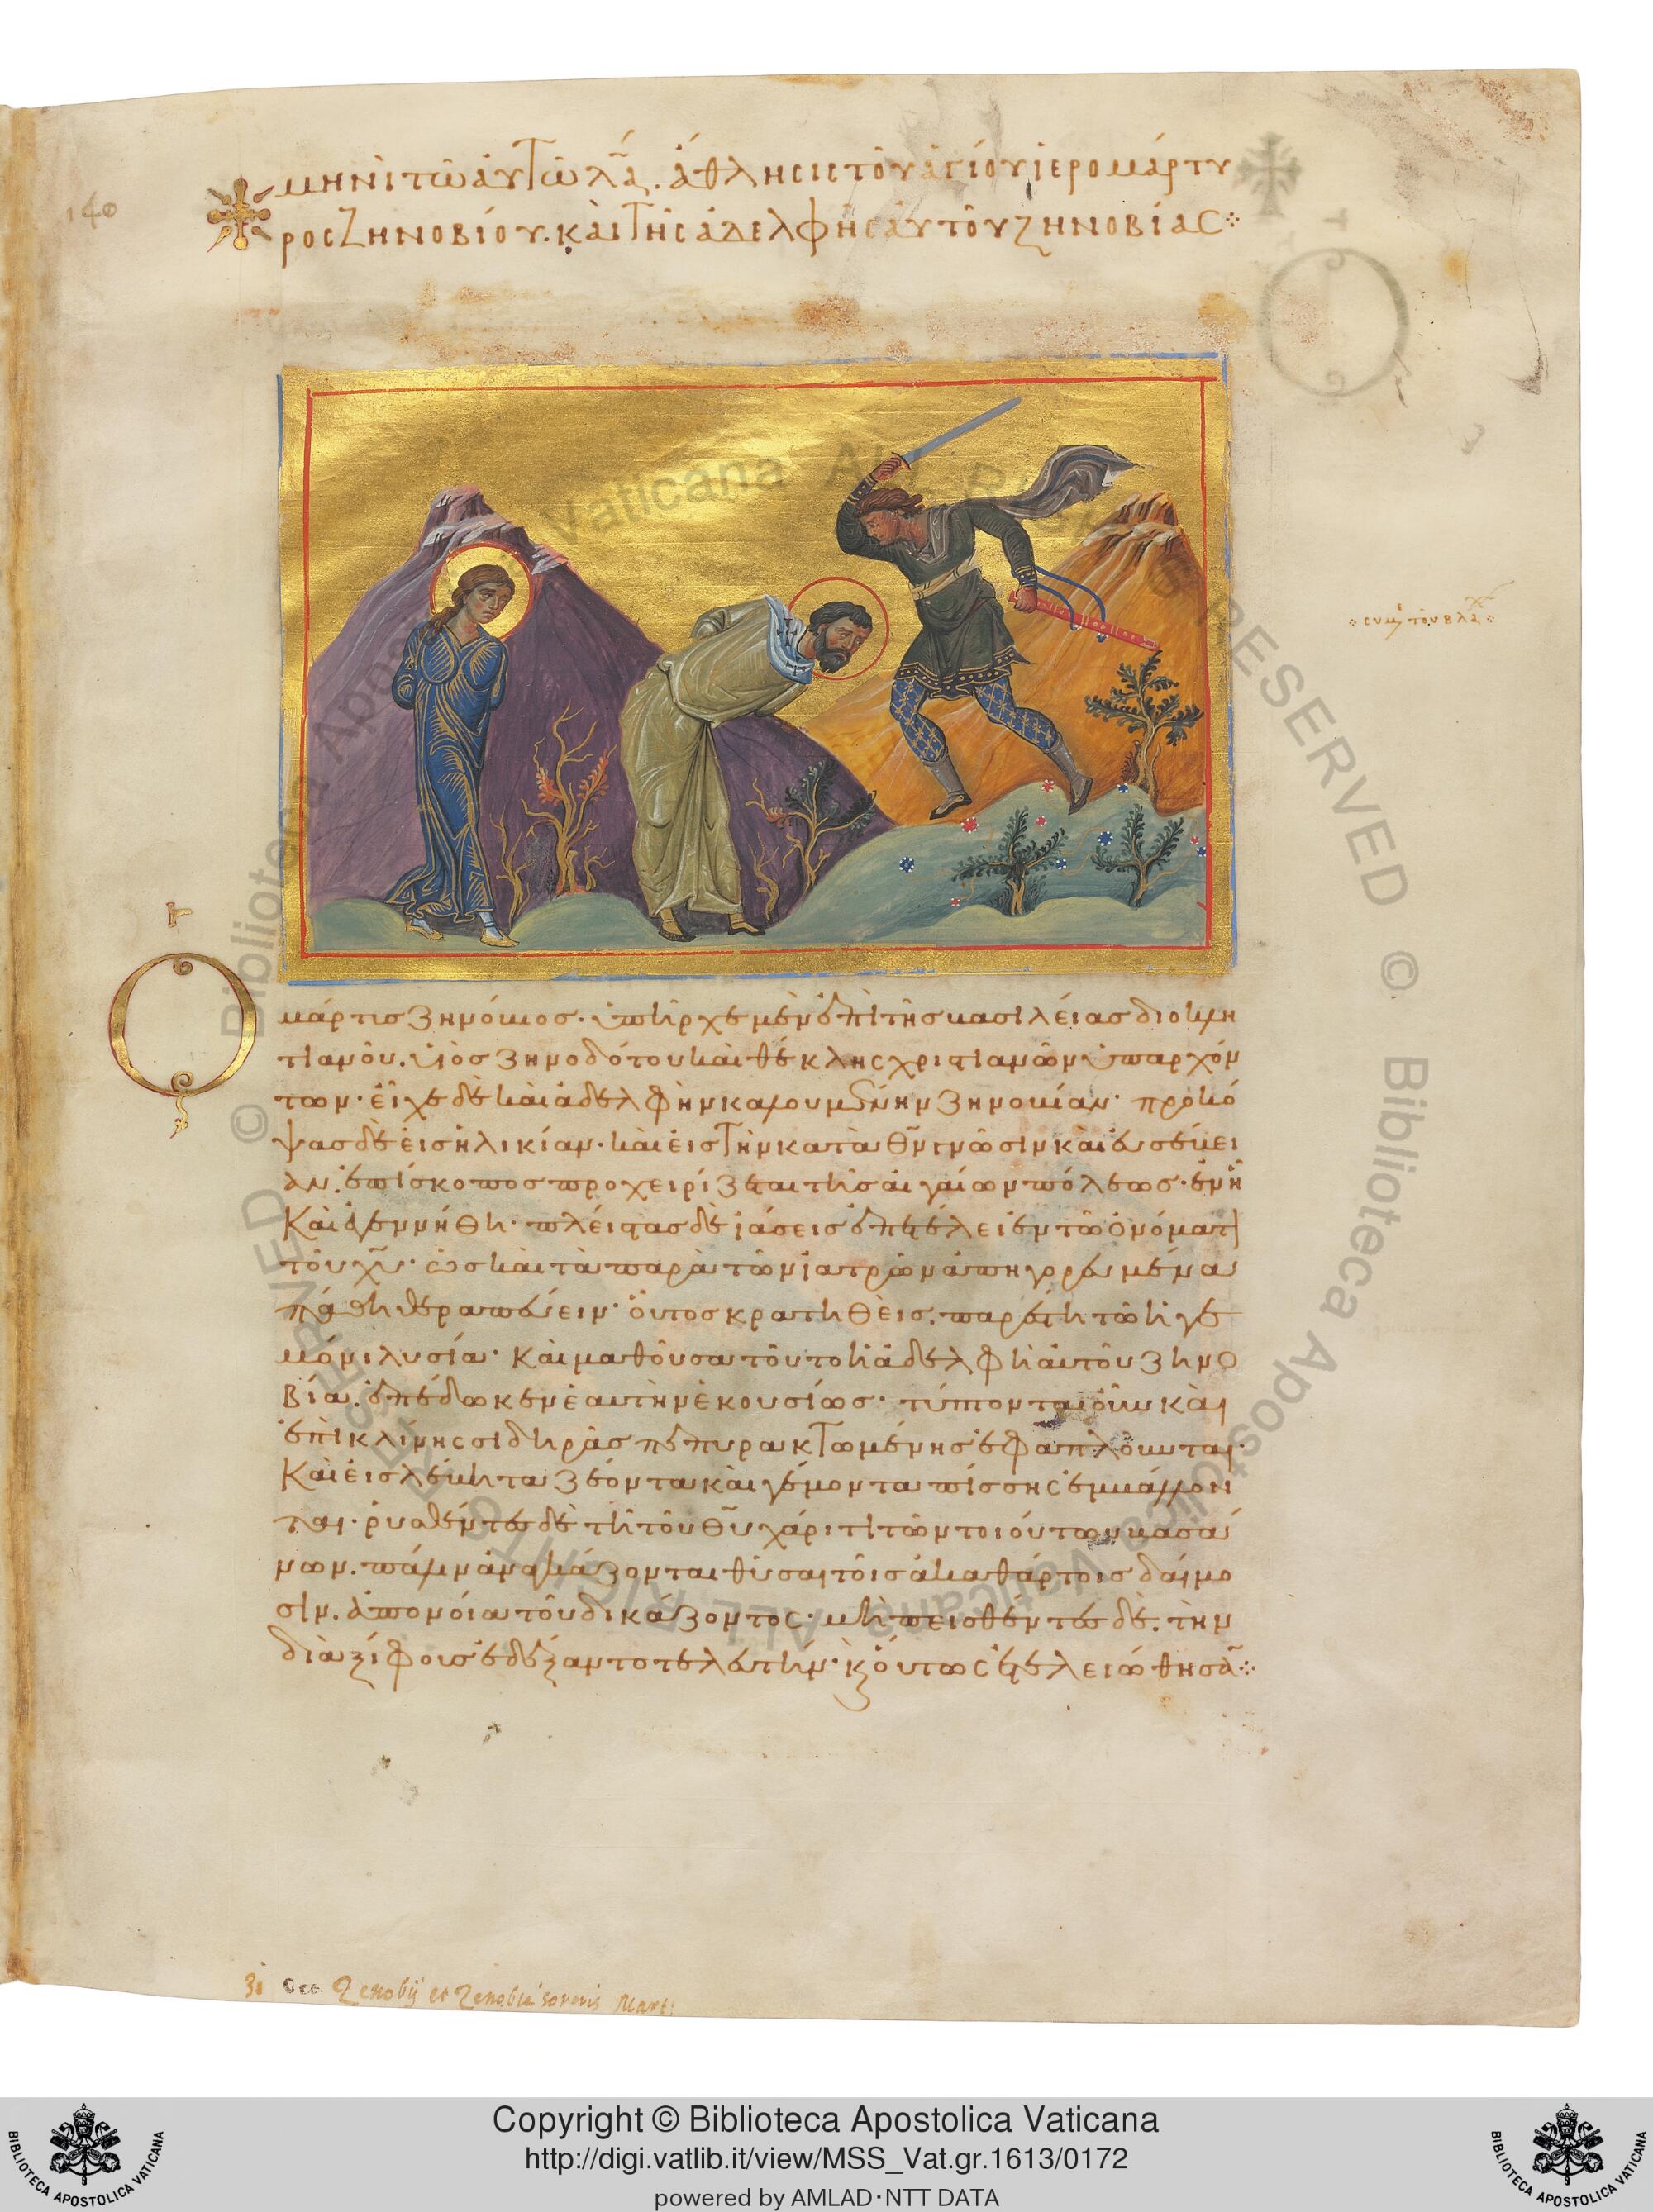 140
μηνὶ τῶ αὐτῶ λᾱ. ἄθλησις τοῦ ἁγίου ἱερομάρτυ
ρος Ζηνοβίου. καὶ τῆς ἀδελφῆς αὐτοῦ Ζηνοβίας
συμ τοῦ βλα
Ο
μάρτυς Ζηνόβιος. ὑπῆρχε μὲν ἐπὶ τῆς βασιλείας διοκλη
τιανοῦ. υἱὸς Ζηνοδότου καὶ θέκλης χριστιανῶν ὑπαρχόν
των. εἶχε δὲ καὶ ἀδελφὴν καλουμένην Ζηνοβίαν. προκό
ψας δὲ εἰς ἡλικίαν. καὶ εἰς τὴν κατὰ θ̄ν γνῶσιν καὶ εὐσέβει
αν. ἐπίσκοπος προχειρίζεται τῆς αἰγαίων πόλεως. ἐν ᾗ
καὶ ἐγεννήθη. πλείστας δὲ ἰάσεις ἐπετέλει ἐν τῶ ὀνόματι
τοῦ χ̄υ. ὡς καὶ τὰ παρὰ τῶν ἰατρῶν ἀπηγορευμένα
πάθη θεραπεύειν. οὗτος κρατηθεὶς. παρέστη τῶ ἡγε
μόνι λυσία. καὶ μαθοῦσα τοῦτο ἡ ἀδελφὴ αὐτοῦ Ζηνο
βία. ἐπέδωκεν ἑαυτὴν ἑκουσίως. τύπτονται οὖν καὶ
ἐπὶ κλίνης σιδηρᾶς πεπυρακτωμένης ἐφαπλοῦνται.
καὶ εἰς λέβητα ζέοντα καὶ γέμοντα πίσσης ἐμβάλλον
ται. ῥυσθέντες δὲ τῆ τοῦ θ̄υ χάριτι τῶν τοιούτων βασά
νων. πάλιν ἀναγκάζονται θῦσαι τοῖς ἀκαθάρτοις δαίμο
σιν. ἀπονοία τοῦ δικάζοντος. μὴ πεισθέντες δὲ. τὴν
διὰ ξίφους ἐδέξαντο τελευτήν. κ̀ οὕτως ἐτελειώθησᾱ
31 Oct. Zenobij et Zenobiæ sororis Mart:
© Biblioteca Apostolica Vaticana ALL RIGHTS RESERVED © Biblioteca Apostolica Vaticana ALL RIGHTS RESERVED
Copyright © Biblioteca Apostolica Vaticana
http://digi.vatlib.it/view/MSS_Vat.gr.1613/0172
powered by AMLAD·NTT DATA
BIBLIOTECA APOSTOLICA VATICANA
BIBLIOTECA APOSTOLICA VATICANA